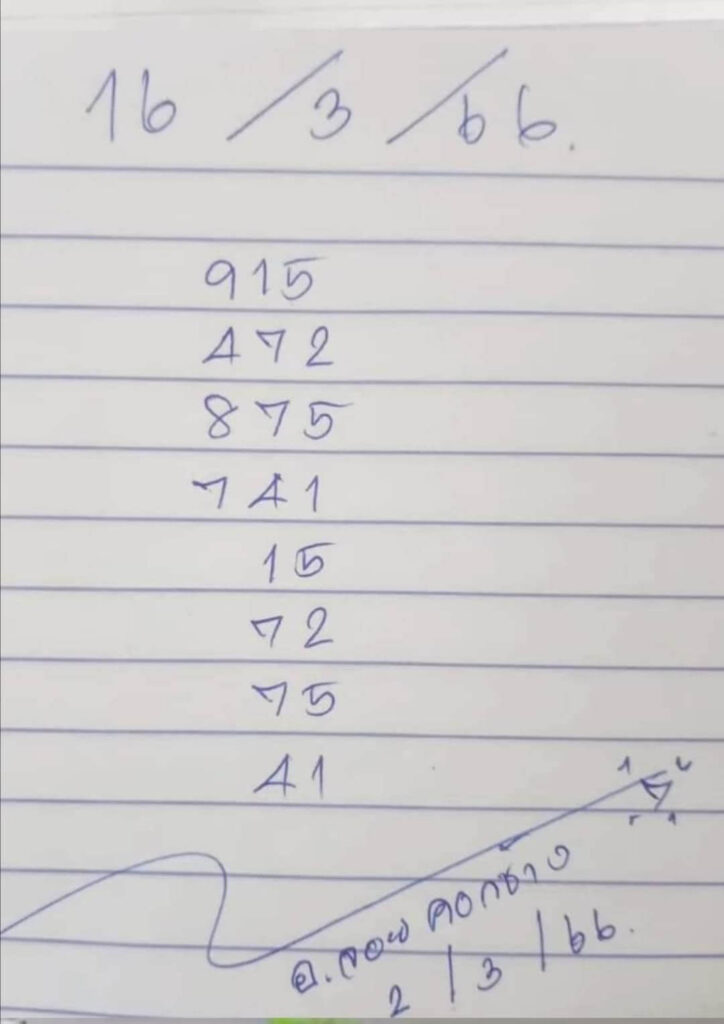 16/3/66.
915
472
875
741
15
72
75
41
อ. คอกช้าง
2/3/66.